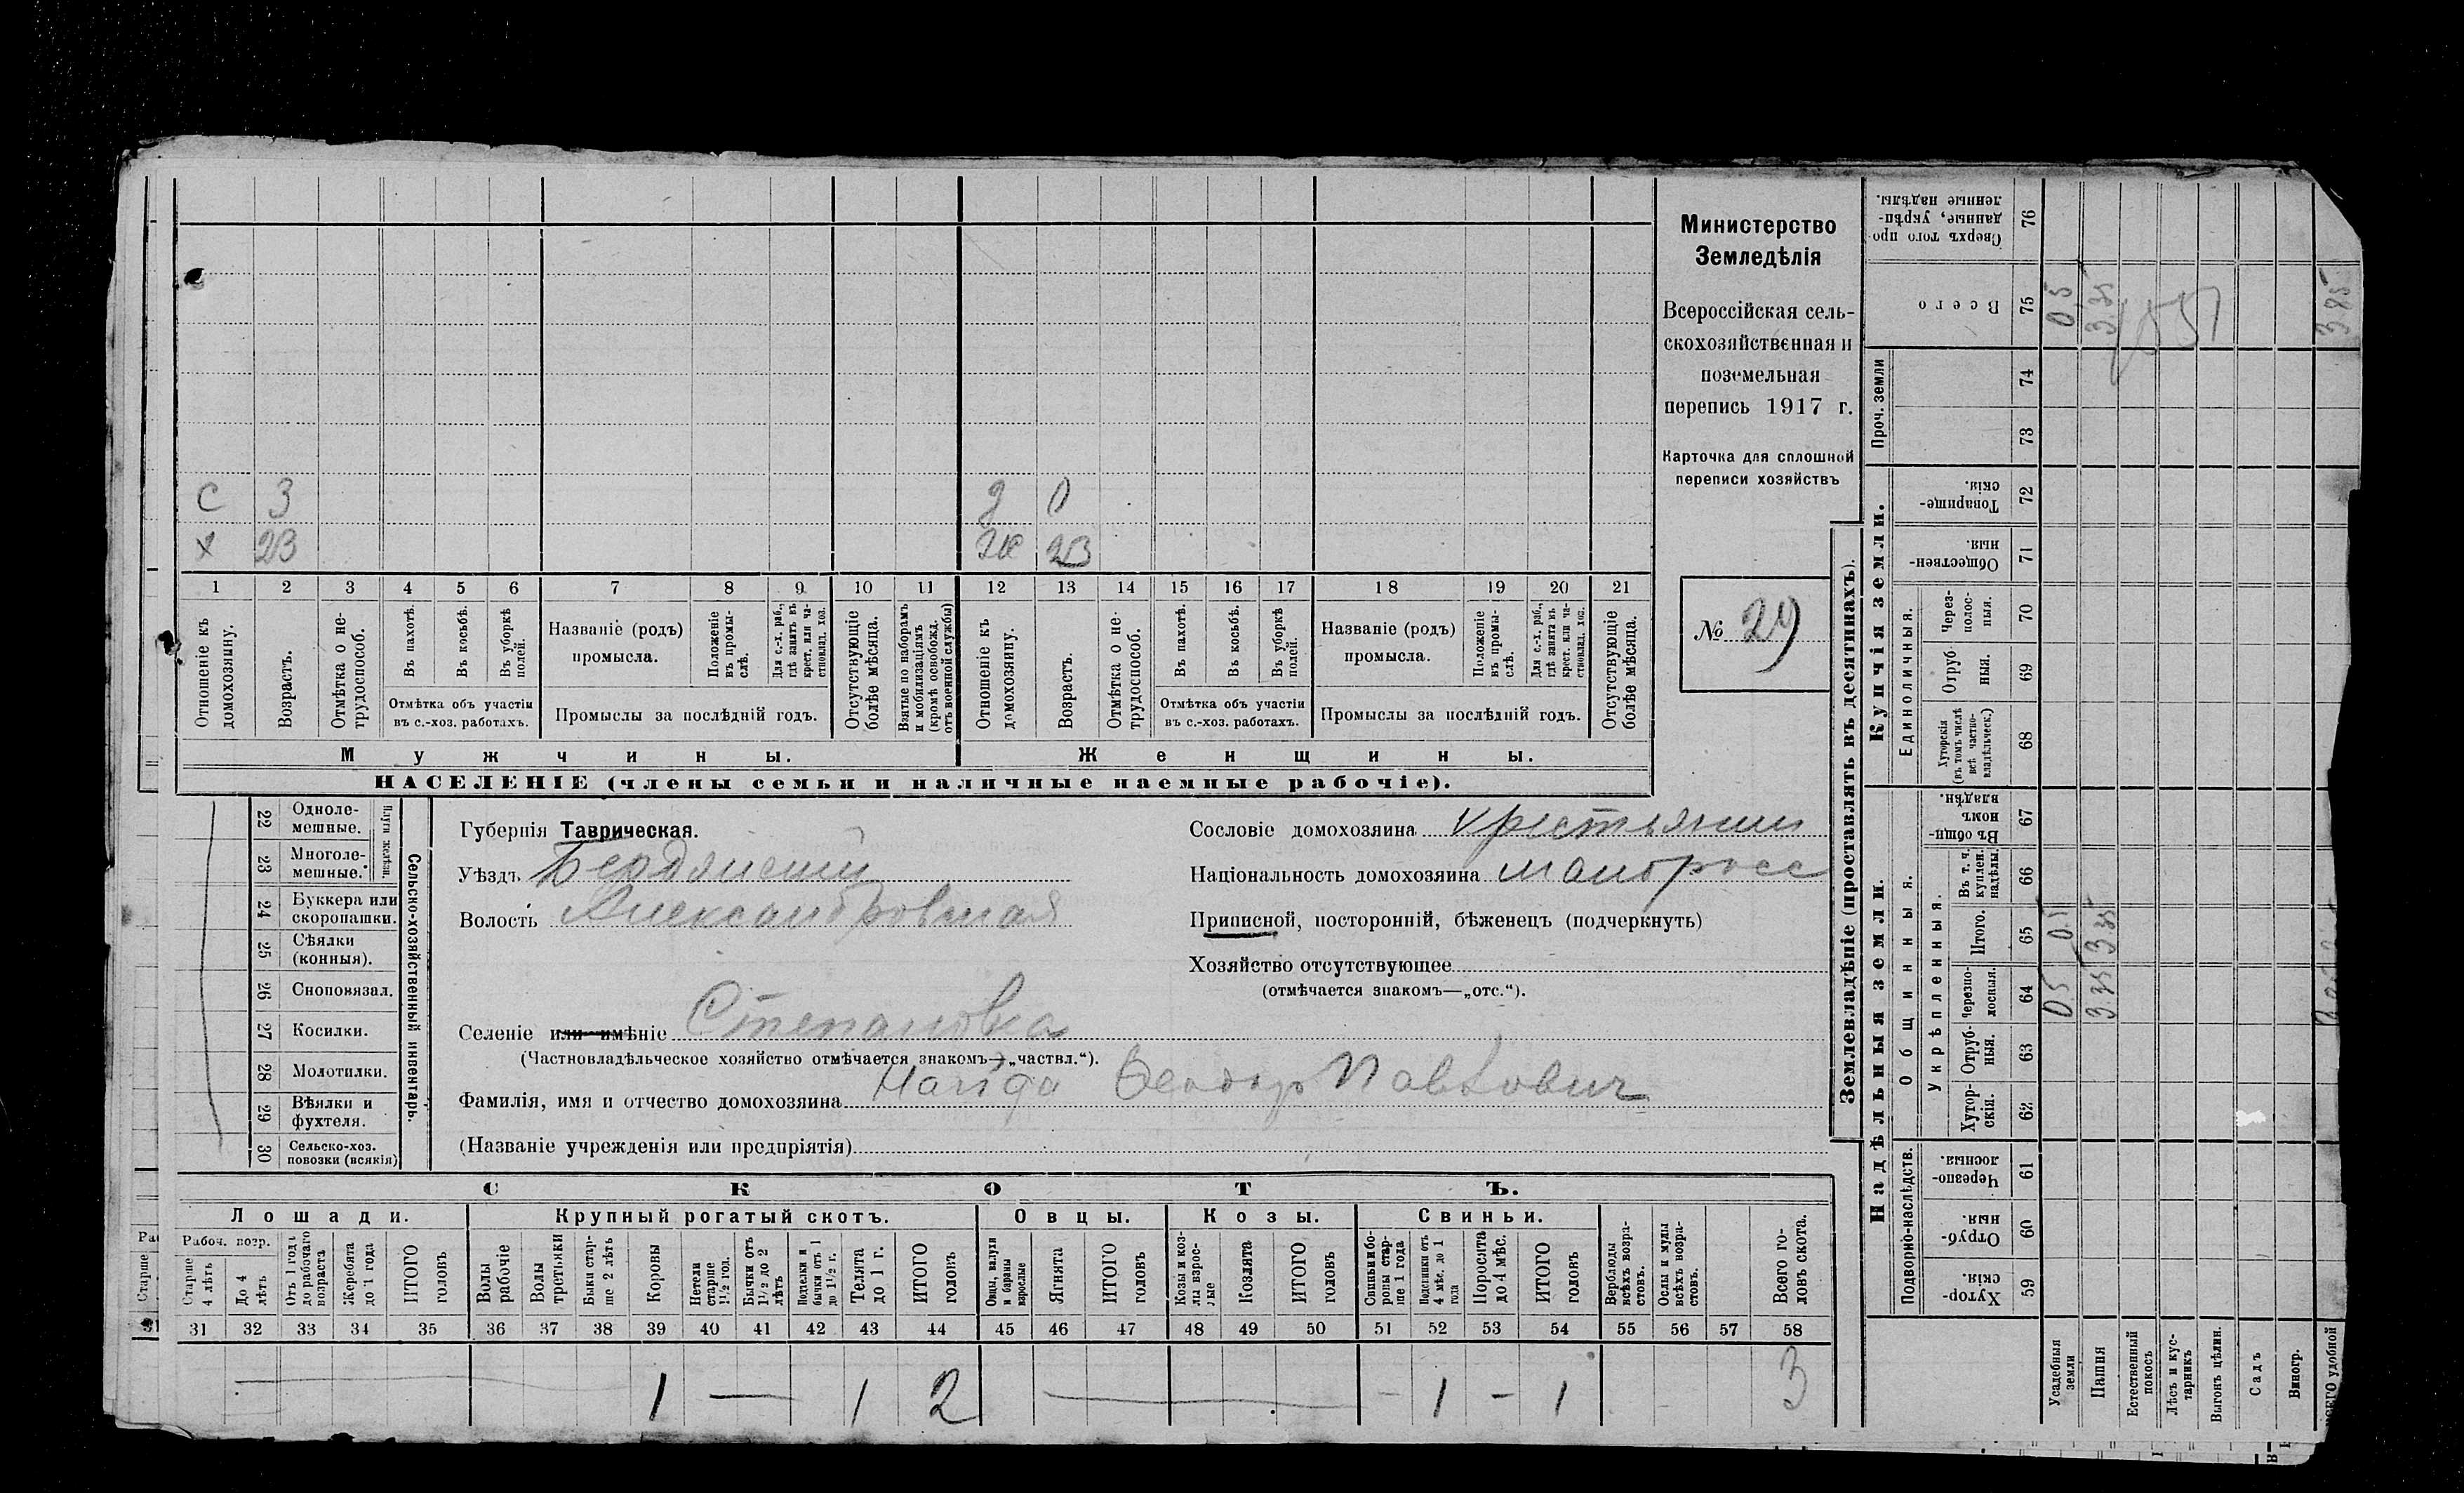 Министерство
Земледѣлія
Всероссійская сель-
скохозяйственная и
поземельная
перепись 1917 г.
Карточка для сплошной
переписи хозяйствъ
№ 29
С 3
д 0
х 23
ж 23
1 2 3 4 5 6 7 8 9 10 11 12 13 14 15 16 17 18 19 20 21
Отношеніе къ домохозяину.
Возрастъ.
Отмѣтка о не-трудоспособ.
Въ пахотѣ.
Въ косьбѣ.
Въ уборкѣ полей.
Отмѣтка объ участіи
въ с.-хоз. работахъ.
Названіе (родъ)
промысла.
Положеніе въ промы-слѣ.
Для с.-х. раб., гдѣ занятъ въ крест. или ча-стновлад. хоз.
Промыслы за послѣдній годъ.
Отсутствующіе болѣе мѣсяца.
Взятые по наборамъ и мобилизаціямъ (кромѣ освобожд. отъ военной службы)
Отношеніе къ домохозяину.
Возрастъ.
Отмѣтка о не-трудоспособ.
Въ пахотѣ.
Въ косьбѣ.
Въ уборкѣ полей.
Отмѣтка объ участіи
въ с.-хоз. работахъ.
Названіе (родъ)
промысла.
Положеніе въ промы-слѣ.
Для с.-х. раб., гдѣ занята въ крест. или ча-стновлад. хоз.
Промыслы за послѣдній годъ.
Отсутствующіе болѣе мѣсяца.
Мужчины.
Женщины.
НАСЕЛЕНІЕ (члены семьи и наличные наемные рабочіе).
Сельско-хозяйственный инвентарь.
Плуги желѣзн.
22 Одноле-мешные.
23 Многоле-мешные.
24 Буккера или скоропашки.
25 Сѣялки (конныя).
26 Сноповязал.
27 Косилки.
28 Молотилки.
29 Вѣялки и фухтеля.
30 Сельско-хоз. повозки (всякія)
Губернія Таврическая.
Уѣздъ Бердянский
Волость Александровская
Селеніе или имѣніе Степановка
(Частновладѣльческое хозяйство отмѣчается знакомъ—„частвл.“).
Фамилія, имя и отчество домохозяина Найда Феодор Павлович
(Названіе учрежденія или предпріятія)
Сословіе домохозяина крестьянин
Національность домохозяина малоросс
Приписной, посторонній, бѣженецъ (подчеркнуть)
Хозяйство отсутствующее
(отмѣчается знакомъ—„отс.“).
СКОТЪ.
Лошади.
Крупный рогатый скотъ.
Овцы.
Козы.
Свиньи.
Рабоч. возр.
Старше 4 лѣтъ
До 4 лѣтъ
Отъ 1 года до рабочаго возраста
Жеребята до 1 года
ИТОГО головъ
Волы рабочіе
Волы третьяки
Быки стар-ше 2 лѣтъ
Коровы
Нетели старше 1½ год.
Бычки отъ 1½ до 2 лѣтъ
Подтелки и бычки отъ 1 до 1½ г.
Телята до 1 г.
ИТОГО головъ
Овцы, валухи и бараны взрослые
Ягнята
ИТОГО головъ
Козы и коз-лы взрос-лые
Козлята
ИТОГО головъ
Свиньи и бо-ровы стар-ше 1 года
Подсвинки отъ 4 мѣс. до 1 года
Поросята до 4 мѣс.
ИТОГО головъ
Верблюды всѣхъ возра-стовъ.
Ослы и мулы всѣхъ возра-стовъ.
Всего го-ловъ скота.
31 32 33 34 35 36 37 38 39 40 41 42 43 44 45 46 47 48 49 50 51 52 53 54 55 56 57 58
1 — 1 2 — 1 – 1 3
Землевладѣніе (проставлять въ десятинахъ).
Надѣльныя земли.
Купчія земли.
Проч. земли
Подворно-наслѣдств.
Общинныя.
Укрѣпленныя.
Единоличныя.
Хутор-скія. 59
Отруб-ныя. 60
Черезпо-лосныя. 61
Хутор-скія. 62
Отруб-ныя. 63
Черезпо-лосныя. 64
Итого. 65
Въ т. ч. куплен. надѣлы. 66
Въ общи-номъ владѣн. 67
Хуторскія (въ томъ числѣ всѣ частно-владѣльческ.) 68
Отруб-ныя. 69
Через-полос-ныя. 70
Обществен-ныя. 71
Товарище-скія. 72
73
74
Всего 75
Сверхъ того про-данные, укрѣп-ленные надѣлы. 76
Усадебныя земли 05 05 05
Пашня 3.35 3.35 3.35
Естественный покосъ
Лѣсъ и кус-тарникъ
Выгонъ цѣлин.
Садъ
Виногр.
ВСЕГО удобной 3.85